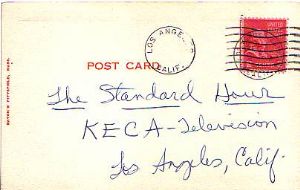 LOS ANGELES
CALIF.
POST CARD
The Standard Hour
KECA-Television
Los Angeles, Calif.